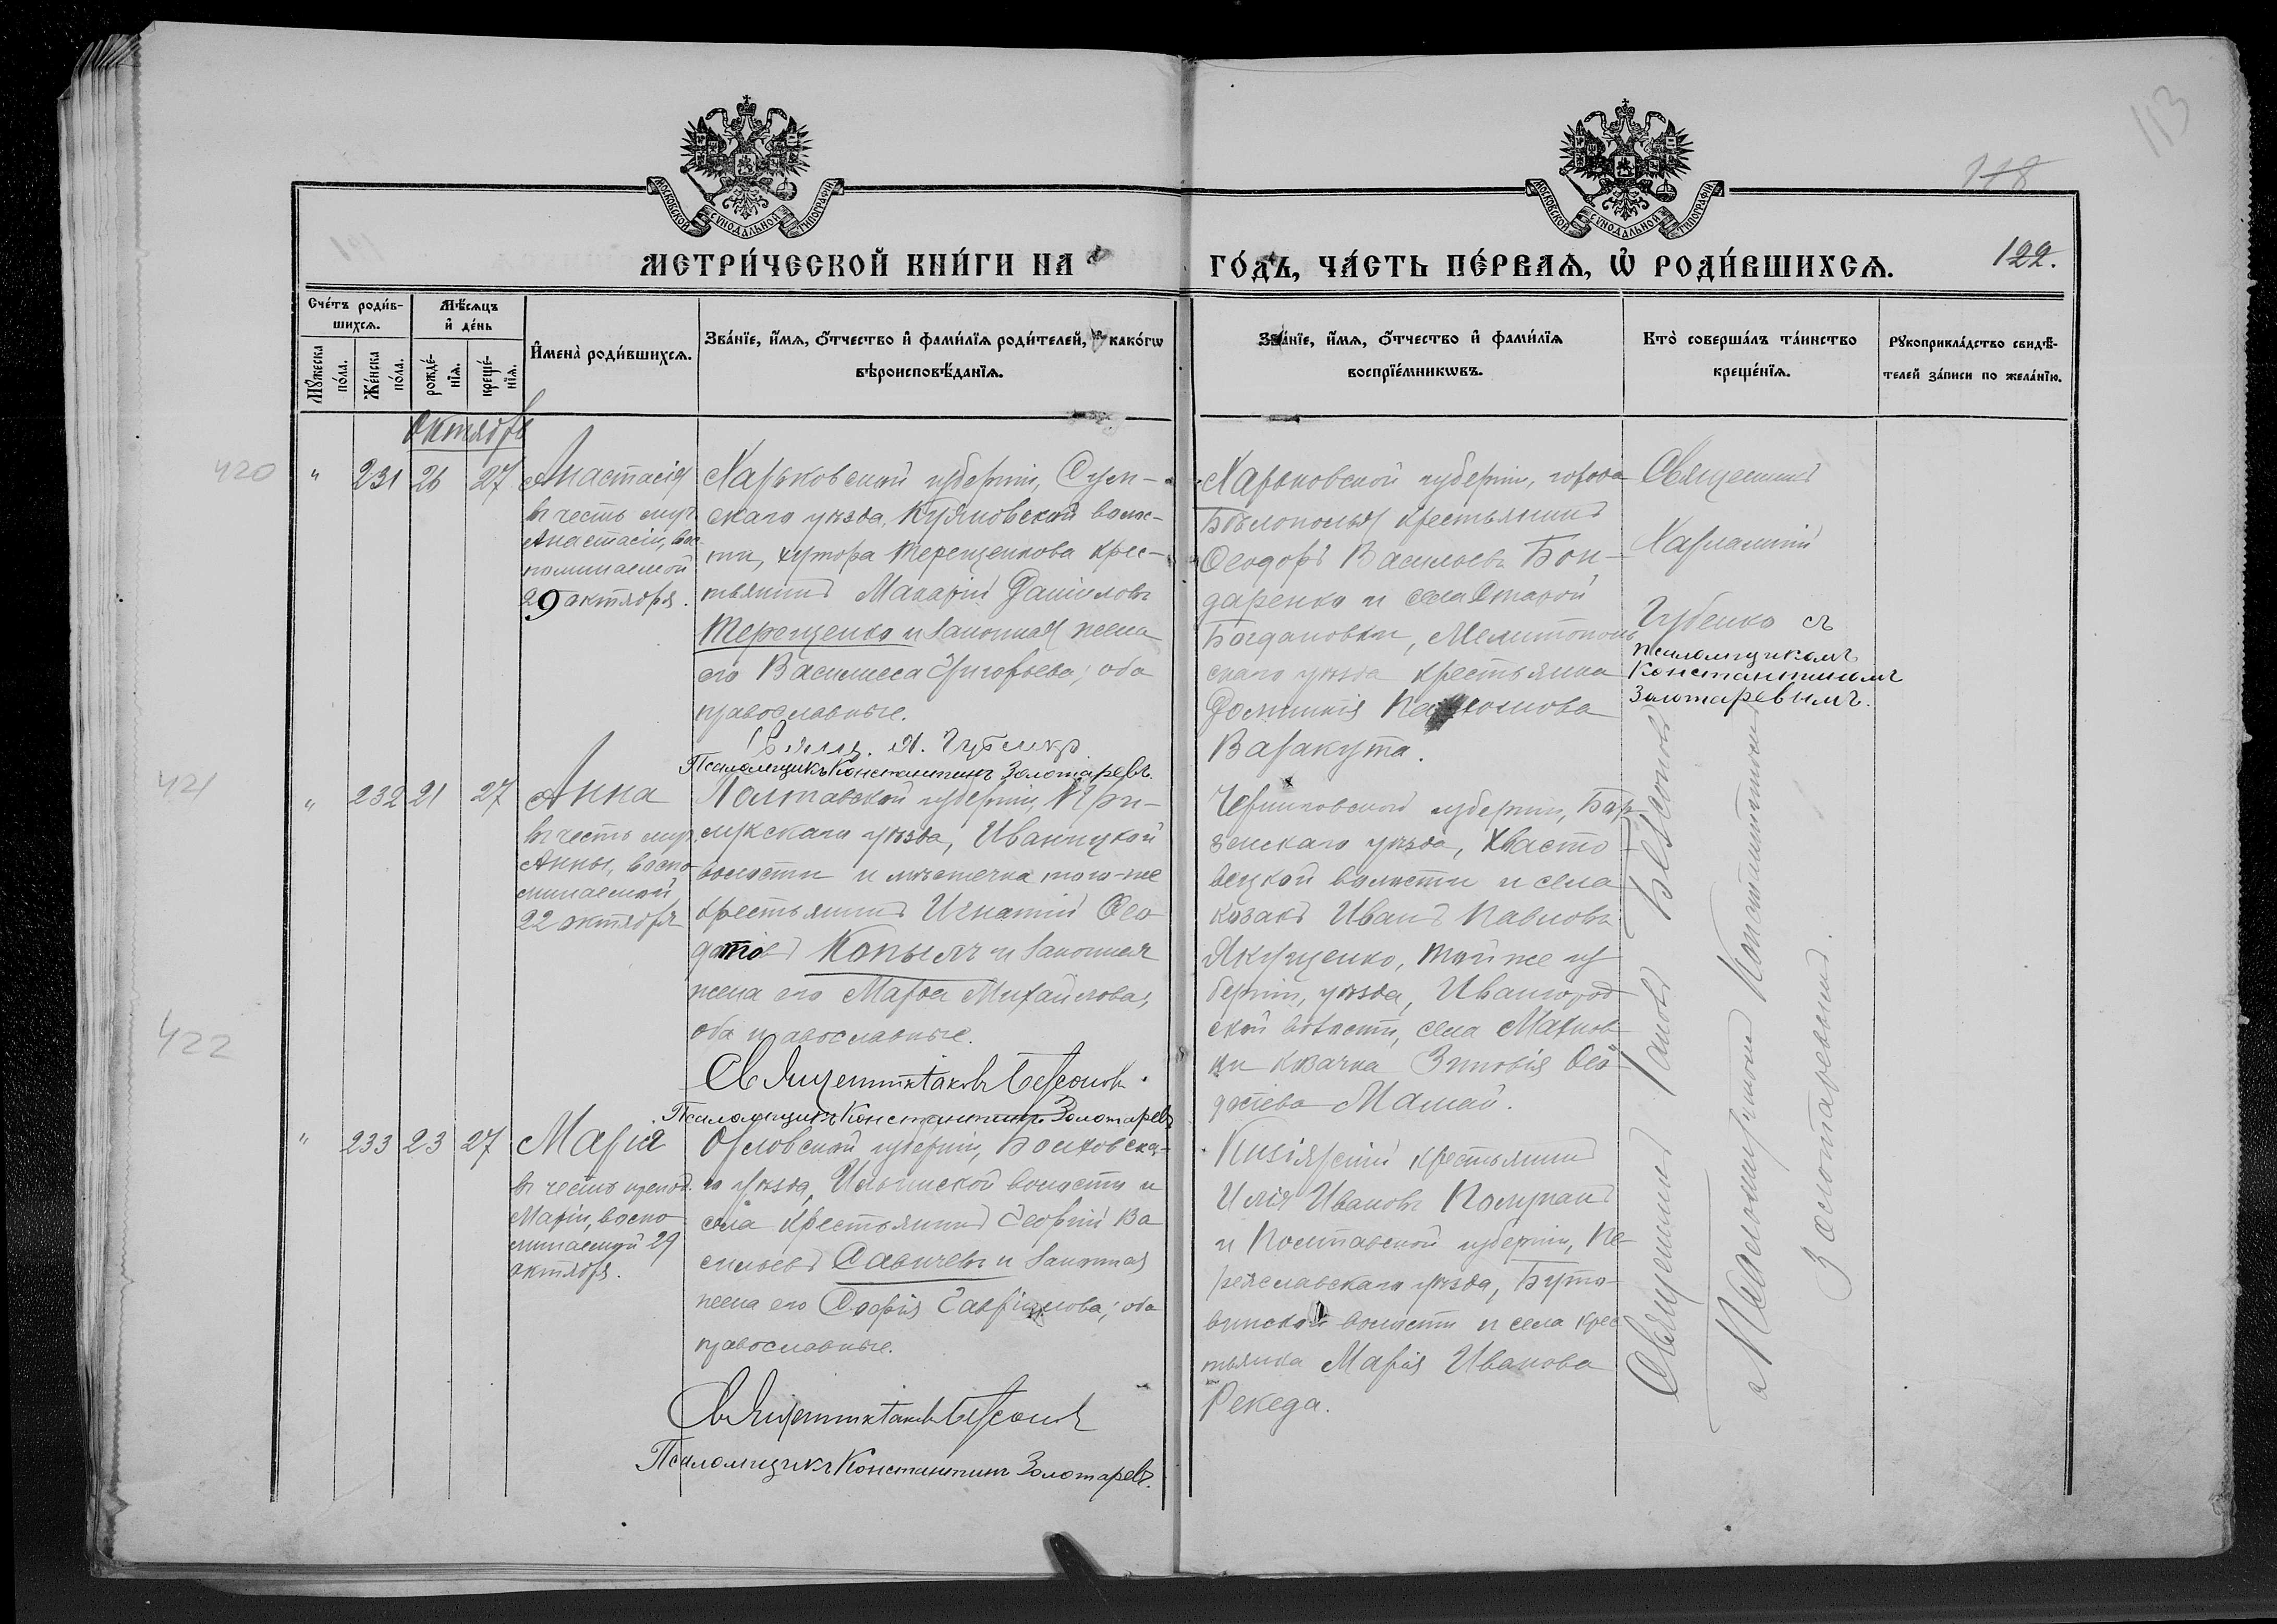 113
118
МОСКОВСКОЙ СѴНОДАЛЬНОЙ ТИПОГРАФІИ
МОСКОВСКОЙ СѴНОДАЛЬНОЙ ТИПОГРАФІИ
МЕТРИ́ЧЕСКОЙ КНИ́ГИ НА
ГО́ДЪ, ЧА́СТЬ ПЕ́РВАѦ, Ѡ҆ РОДИ́ВШИХСѦ.
122.
Сче́тъ роди́в-
шихсѧ.
Мѣ́сѧцъ
и҆ де́нь
Мꙋ́жеска
по́ла.
Же́нска
по́ла.
рожде́-
нїѧ.
креще́-
нїѧ.
И҆мена̀ роди́вшихсѧ.
Зва́нїе, и҆́мѧ, ѻ҆́тчество и҆ фами́лїѧ роди́телей, и҆ како́гѡ
вѣроисповѣ́данїѧ.
Зва́нїе, и҆́мѧ, ѻ҆́тчество и҆ фами́лїѧ
воспрїе́мникѡвъ.
Кто̀ соверша́лъ та́инство
креще́нїѧ.
Рꙋкоприкла́дство свидѣ́-
телей за́писи по жела́нїю.
Октябрь
420
" 231 26 27
Анастасія
въ честь муч.
Анастасіи, вос
поминаемой
29 октября.
Харьковской губерніи, Сум-
скаго уѣзда, Куяновской волос-
ти, хутора Терещенкова крес-
тьянинъ Макарій Даніиловъ
Терещенко и законная жена
его Василисса Григорьева; оба
православные.
Свящ. Х. Губенко
Псаломщикъ Константинъ Золотаревъ.
Харьковской губерніи, города
Бѣлополья крестьянинъ
Ѳеодоръ Васильевъ Бон-
даренко и села Старой
Богдановки, Мелитополь
скаго уѣзда крестьянка
Домникія
Варакута.
Священникъ
Харлампій
Губенко съ
псаломщикомъ
Константиномъ
Золотаревымъ.
421
" 232 21 27
Анна
въ честь муч.
Анны, воспо
минаемой
22 октября
Полтавской губерніи При-
лукскаго уѣзда, Иваницкой
волости и мѣстечка того-же
крестьянинъ Игнатій Ѳео
Копылъ и законная
жена его Марѳа Михайлова,
оба православные.
Священникъ Іаковъ Безсоновъ.
Псаломщикъ Константинъ Золотаревъ
Черниговской губерніи, Бор
зенскаго уѣзда, Хвасто
вецкой волости и села
козакъ Иванъ Павловъ
Якущенко, той же гу
берніи, уѣзда, Ивангород
ской волости, села Махнов
ки козачка Зиновія Ѳео
досіева Мамай.
422
" 233 23 27
Марія
въ честь препод.
Маріи, воспо
минаемой 29
октября.
Орловской губерніи, Болховска-
го уѣзда, Ильинской волости и
села крестьянинъ Георгій Ва
сильевъ Савичевъ и законная
жена его Софія Гавріилова; оба
православные.
Священникъ Іаковъ Безсоновъ
Псаломщикъ Константинъ Золотаревъ.
Кизіярскій крестьянинъ
Илія Ивановъ Колупанъ
и Полтавской губерніи, Пе-
реяславскаго уѣзда,
волости и села крес
тьянка Марія Иванова
Рекеда.
Священникъ Іаковъ Безсоновъ
съ Псаломщикомъ Константиномъ
Золотаревымъ.